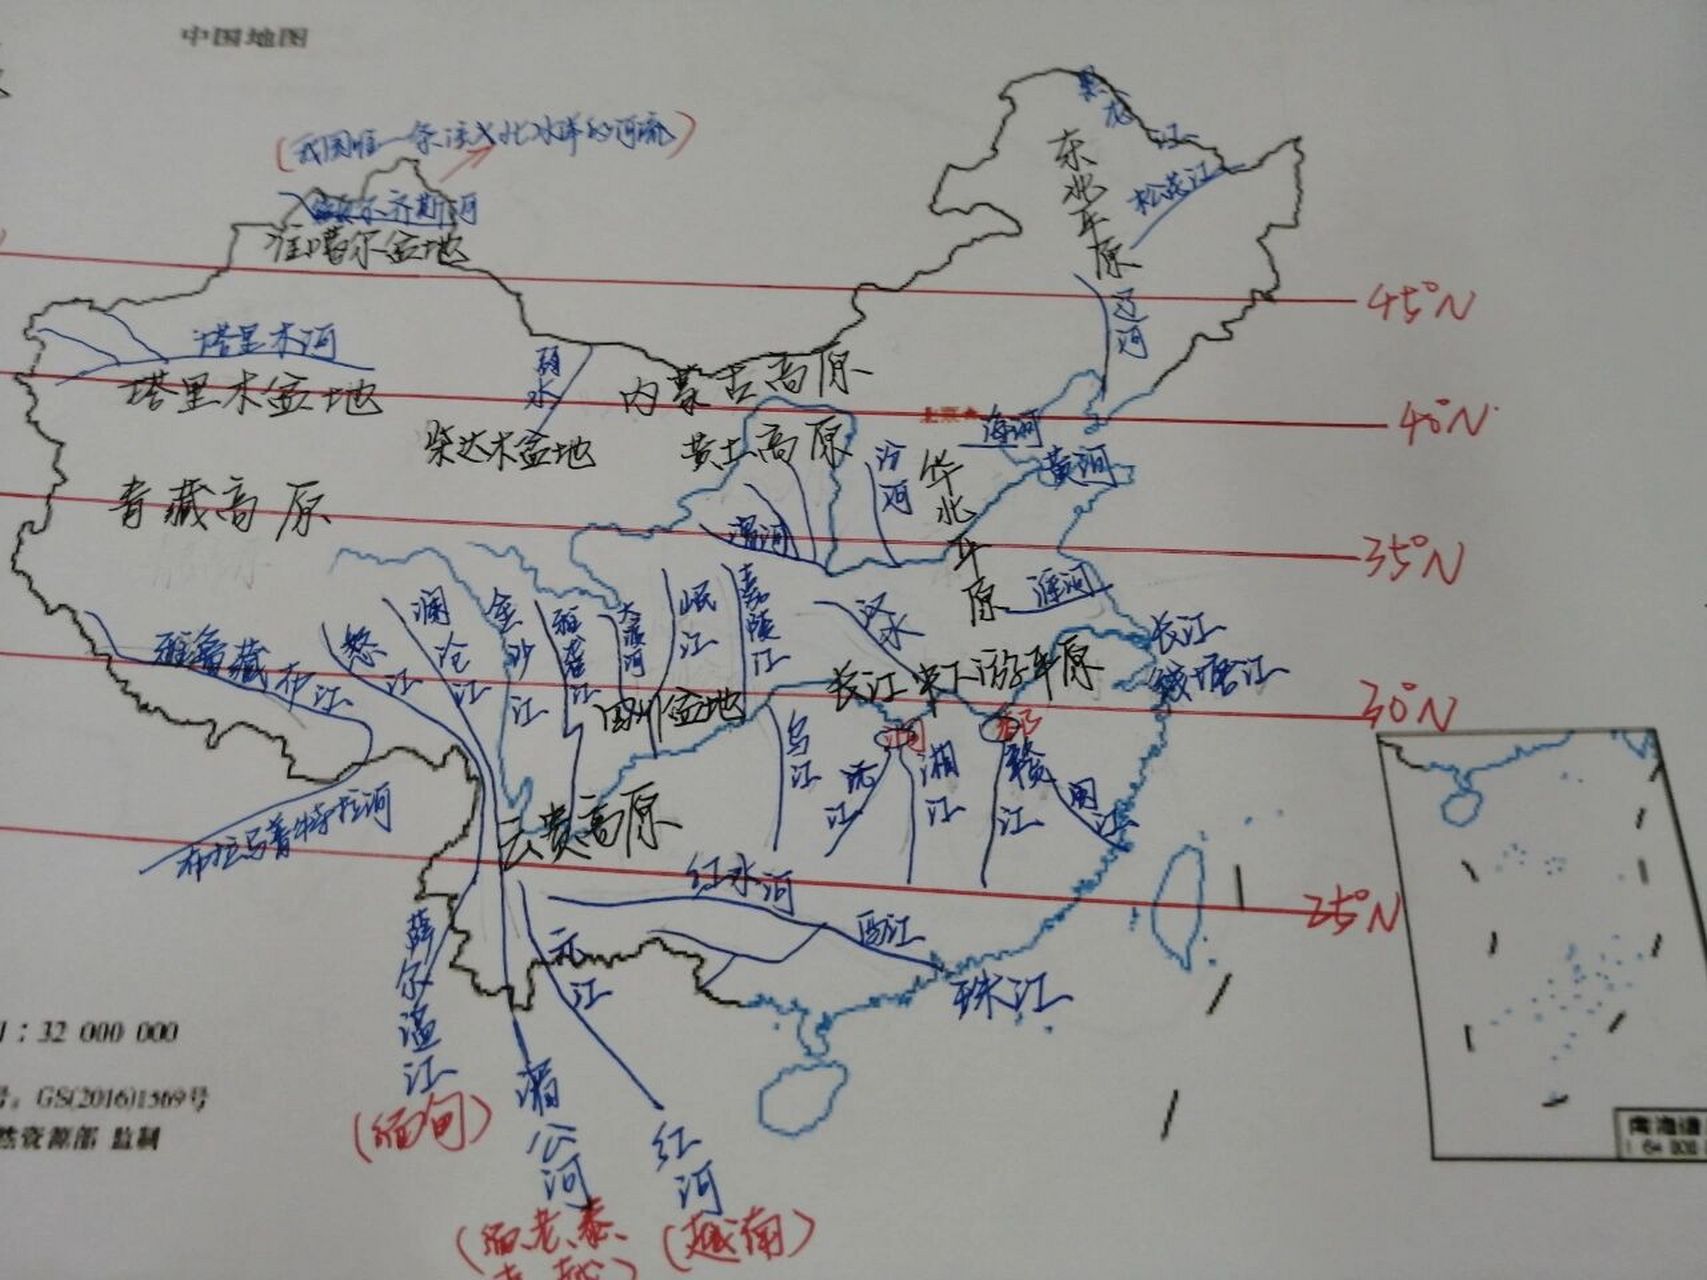 中国地图
黑龙江
(我国唯一一条注入北冰洋的河流)
东北平原
松花江
额尔齐斯河
准噶尔盆地
45°N
辽河
塔里木河
弱水
塔里木盆地
内蒙古高原
北京
海河
40°N
柴达木盆地
黄土高原
汾河
华北平原
黄河
青藏高原
渭河
35°N
淮河
雅鲁藏布江
怒江
澜沧江
金沙江
雅砻江
大渡河
岷江
嘉陵江
汉水
长江
钱塘江
四川盆地
长江中下游平原
30°N
洞
鄱
乌江
沅江
湘江
赣江
闽江
布拉马普特拉河
云贵高原
红水河
西江
25°N
萨尔温江
元江
珠江
1:32 000 000
号:GS(2016)1569号
然资源部 监制
(缅甸)
湄公河
红河
(越南)
(缅、老、泰、
南海诸